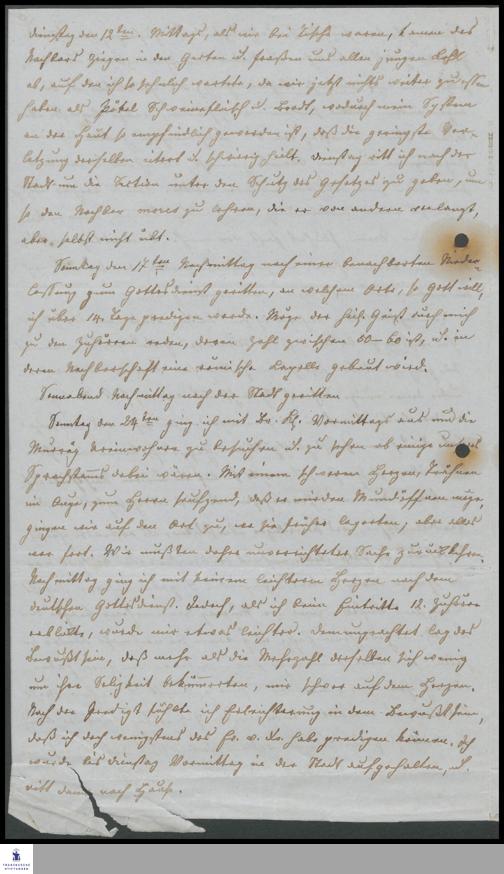 Dienstag den 12ten. Mittags, als wir bei Tische waren, kamen des
Nachbars Ziegen in den Garten u. fraßen uns allen jungen Kohl
ab, auf den ich so sehnlich wartete, da wir jetzt nichts weiter zu essen
haben als Pökel Schweinefleisch u. Brodt, wodurch mein System
an der Haut so empfindlich geworden ist, daß die geringste Ver-
letzung derselben eitert u. schwierig heilt. Dienstag ritt ich nach der
Stadt um die Station unter den Schutz des Gesetzes zu geben, um
so den Nachbar mores zu lehren, die er von andern verlangt,
aber selbst nicht übt.
Sonntag den 17ten Nachmittag nach einer benachbarten Nieder-
lassung zum Gottesdienst geritten, an welchem Orte, so Gott will,
ich über 14 Tage predigen werde. Möge der heil. Geist durch mich
zu den Zuhörern reden, deren Zahl zwischen 50-60 ist, u. in
deren Nachbarschaft eine römische Kapelle gebaut wird.
Sonnabend Nachmittag nach der Stadt geritten.
Sonntag den 24ten ging ich mit Br. Kl. Vormittags aus um die
Murray Einwohner zu besuchen u. zu sehen ob einige unsers
Sprachstamms dabei wären. Mit einem schweren Herzen, Thränen
im Auge, zum Herrn seufzend, daß er mir den Mund öffnen möge,
gingen wir auf den Ort zu, wo sie früher lagerten, aber alles
war fort. Wir mußten daher unverrichteter Sache zurückkehren.
Nachmittag ging ich mit keinem leichteren Herzen nach dem
deutschen Gottesdienst. Jedoch, als ich beim Eintritte 12 Zuhörer
erblickte, wurde mir etwas leichter. Demungeachtet lag das
Bewußtsein, daß mehr als die Mehrzahl derselben sich wenig
um ihre Seligkeit bekümmerten, mir schwer auf dem Herzen.
Nach der Predigt fühlte ich Erleichterung in dem Bewußtsein,
daß ich doch wenigstens das Ev. habe predigen können. Ich
wurde bis Dienstag Vormittag in der Stadt aufgehalten, u.
ritt dann nach Hause.
FRANCKESCHE
STIFTUNGEN